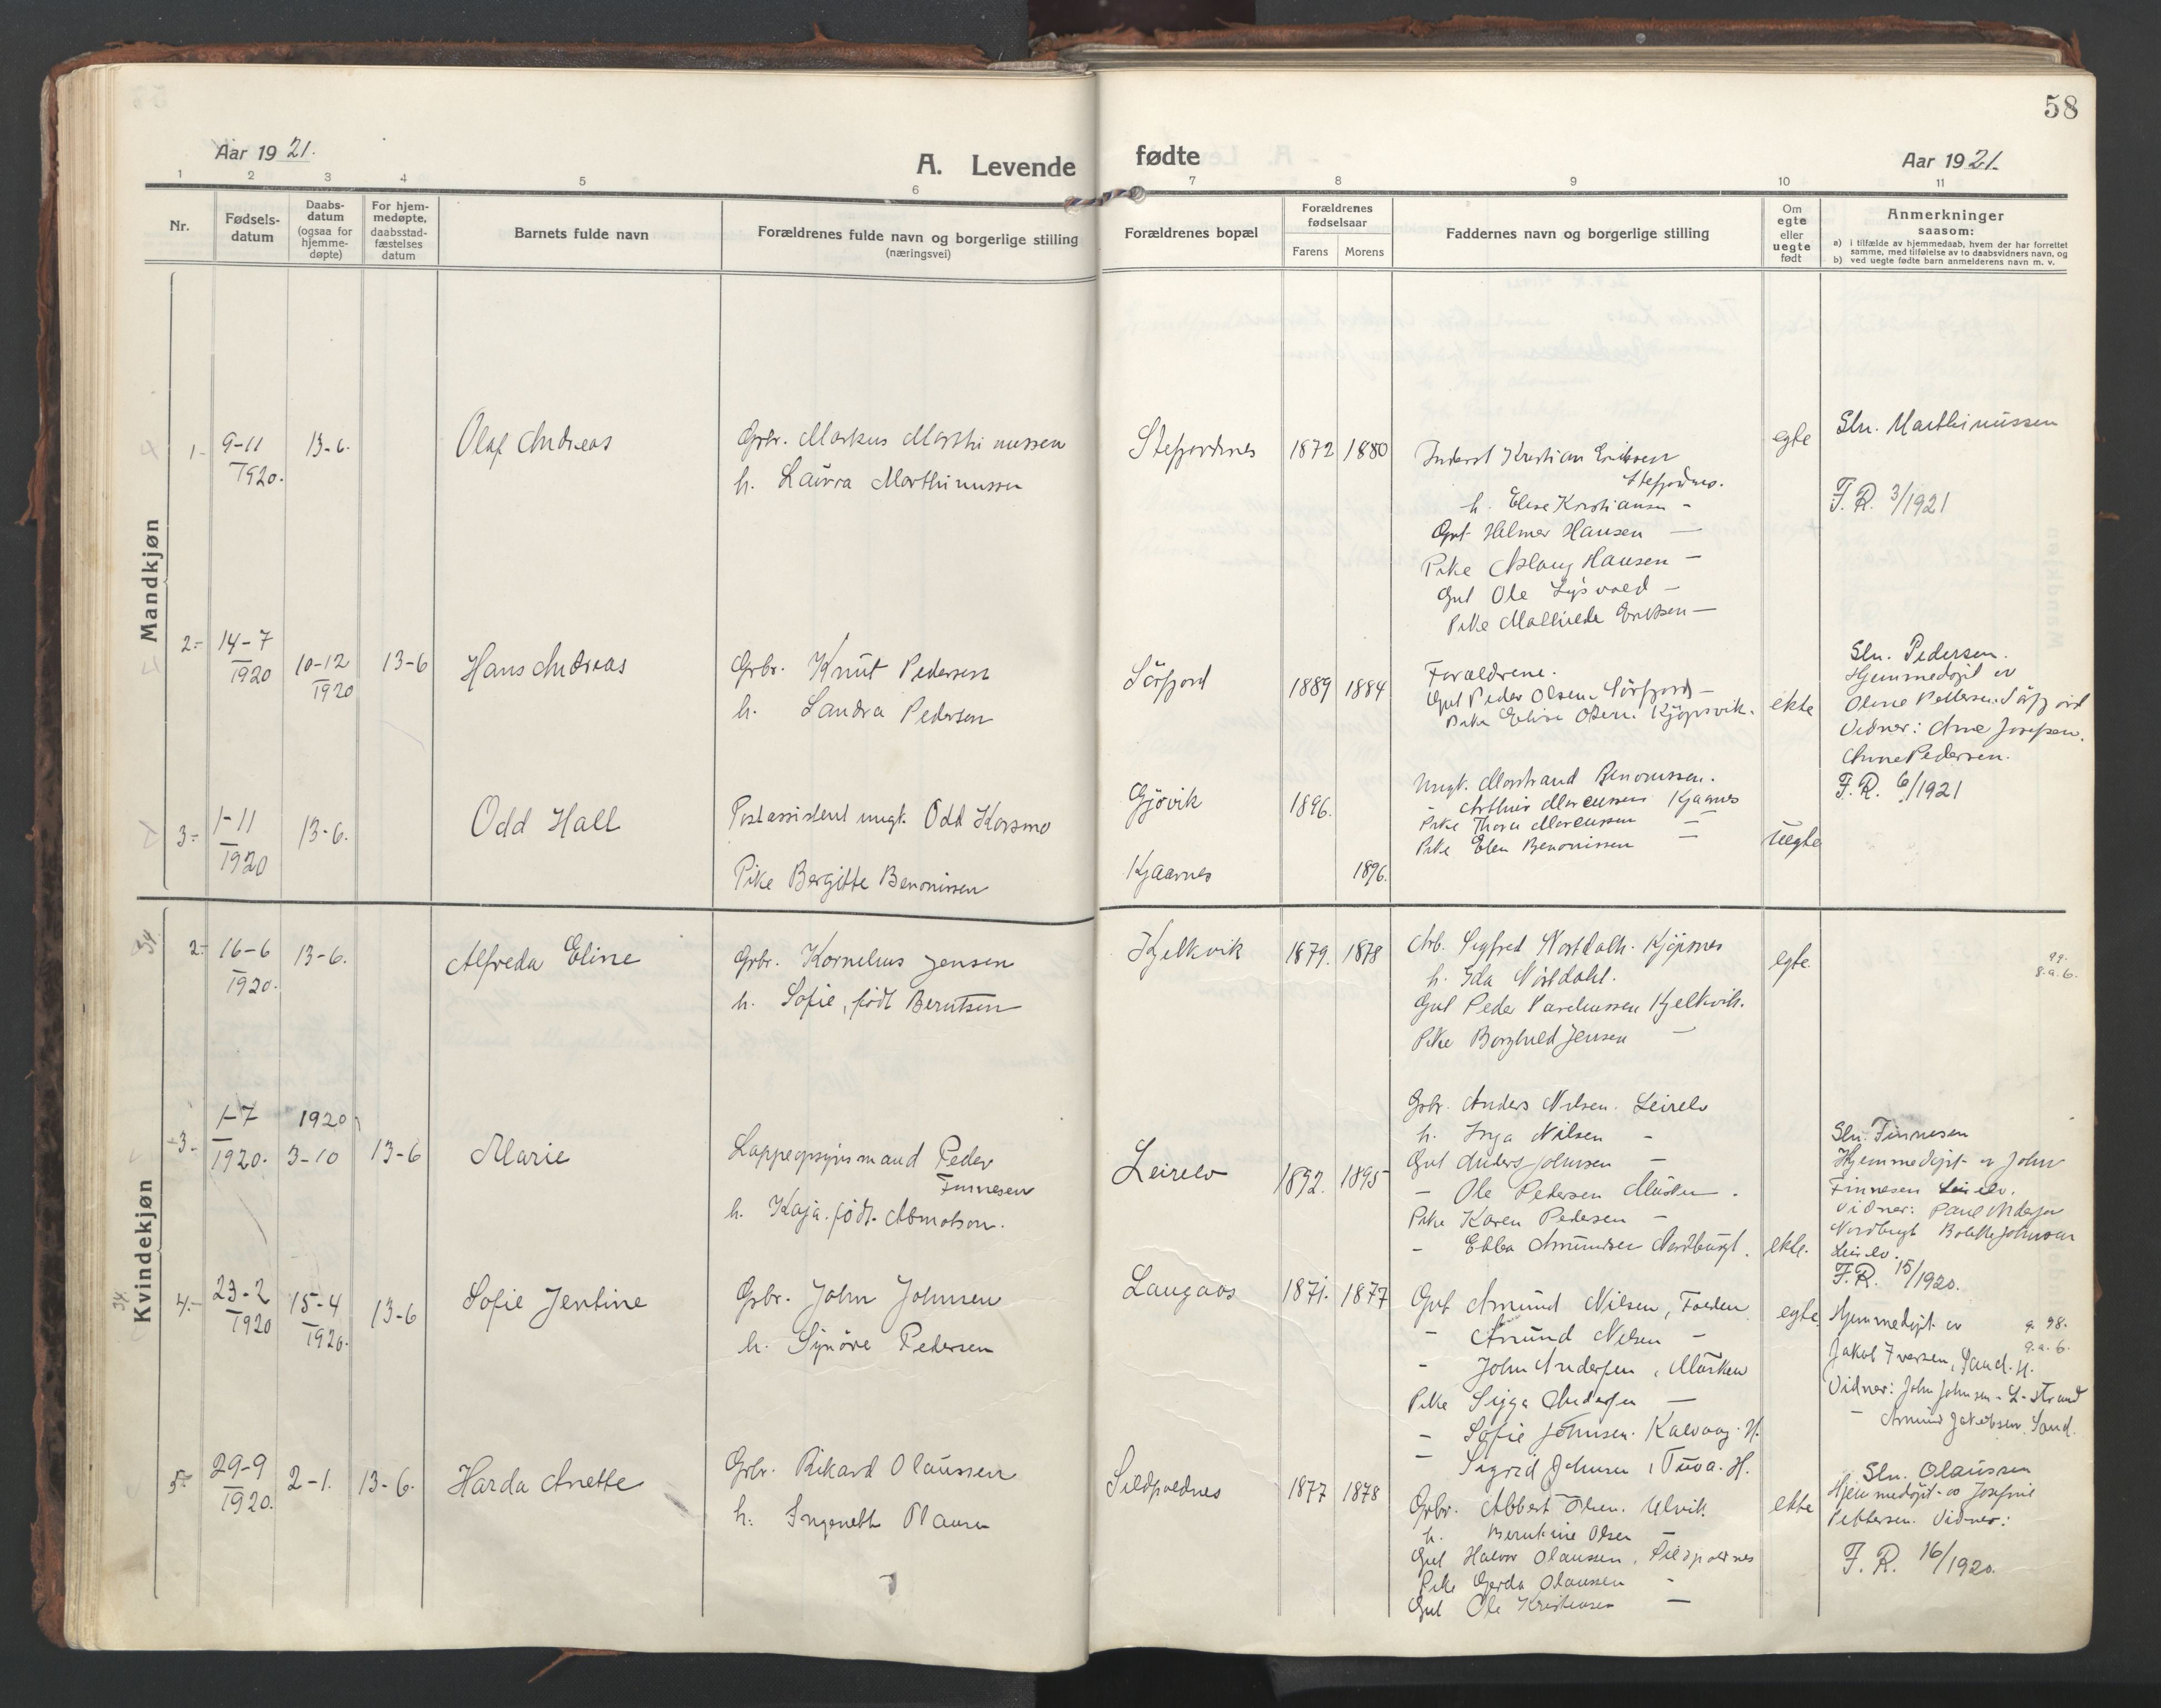 58
Aar 1921.
A. Levende fødte
Aar 1921.
1 2 3 4 5 6 7 8 9 10 11
Nr.
Fødsels-
datum
Daabs-
datum
(ogsaa for
hjemme-
døpte)
For hjem-
medøpte,
daabsstad-
fæstelses
datum
Barnets fulde navn
Forældrenes fulde navn og borgerlige stilling
(næringsvei)
Forældrenes bopæl
Forældrenes
fødselsaar
Farens Morens
Faddernes navn og borgerlige stilling
Om
egte
eller
uegte
født
Anmerkninger
saasom:
a) i tilfælde av hjemmedaab, hvem der har forrettet
samme, med tilføielse av to daabsvidners navn, og
b) ved uegte fødte barn anmelderens navn m. v.
Mandkjøn
1-
9-11
1920.
13-6.
Olaf Andreas
Grbr. Markus Marthinussen
h. Laura Marthinussen
Stefjordnes
1872 1880
Inderst Kristian Eriksen
Stefjordnes.
h. Elise Kristiansen -
Gut Helmer Hansen -
Pike Aslaug Hansen -
Gut Ole Lysvold -
Pike Mathilde Eriksen -
egte
Sln. Marthinussen
F. R. 3/1921
2-
14-7
1920
10-12
1920
13-6
Hans Andreas
Grbr. Knut Pedersen
h. Sandra Pedersen
Sörfjord
1889 1884
Forældrene.
Gut Peder Olsen. Sörfjord -
Pike Elise Olsen. Kjöpsvik.
ekte
Sln. Pedersen.
Hjemmedöpt av
Oline Pettersen. Sörfjord
Vidner: Arne Josefsen.
Anne Pedersen.
F. R. 6/1921
3-
1-11
1920
13-6.
Odd Hall
Postassistent ungk. Odd Korsmo
Pike Bergitte Benonissen
Gjövik
Kjaarnes
1896.
1896.
Ungk. Morstrand Benonissen.
- Arthur Marcussen Kjaarnes
Pike Thora Marcussen -
Pike Elen Benonissen -
uegte
Kvindekjøn
34.
2-
16-6
1920.
13-6.
Alfreda Eline
Grbr. Kornelius Jensen
h. Sofie, födt Berntsen
Kjelkvik
1879. 1878
Arb. Sigfred Nordahl. Kjöpsnes
h. Ida Nordahl.
Gut Peder Kjelkvik.
Pike Borghild Jensen -
egte.
9.a.6.
3-
1-7
1920.
1920
3-10
13-6
Marie
Lappeopsynsmand Peder
Finnesen
h. Kaja. födt.
Leirelv
1892. 1895
Grbr. Anders Nilsen. Leirelv
h. Inga Nilsen -
Gut Anders Johnsen -
- Ole Pedersen Musken.
Pike Karen Pedersen -
- Ebba Amundsen Nordbugt.
ekte.
Sln. Finnesen
Hjemmedöpt av John
Finnesen Leirelv.
Vidner: Paul Andersen
Nordbugt Bolette Johnsen
Leirelv.
F. R. 15/1920.
34.
4-
23-2
1920
15-4
1920.
13-6
Sofie Jentine
Grbr. John Johnsen
h. Synöve Pedersen
Laugaos
1871. 1877
Gut Amund Nilsen,
- Amund Nilsen -
- John Andersen, Musken
Pike Sigga Andersen -
- Sofie Johnsen. Kalvaag. H.
- Sigrid Johnsen, Tuva. H.
egte.
Hjemmedöpt av
9. 98.
9.a.6.
Jakob Iversen, Sand. H.
Vidner: John Johnsen - L-strand
- Amund Jakobsen. Sand.
5-
29-9
1920.
2-1.
13-6.
Harda Anette
Grbr. Rikard Olaussen
h. Ingenett Olausen
Sildpoldnes
1877 1878
Grbr. Albert Olsen. Ulvik.
h. Berntine Olsen -
Gut Halvor Olaussen, Sildpoldnes
Pike Gerda Olaussen -
Gut Ole Kristiansen -
ekte
Sln. Olaussen
Hjemmedöpt av Josefine
Pettersen. Vidner:
F. R. 16/1920.